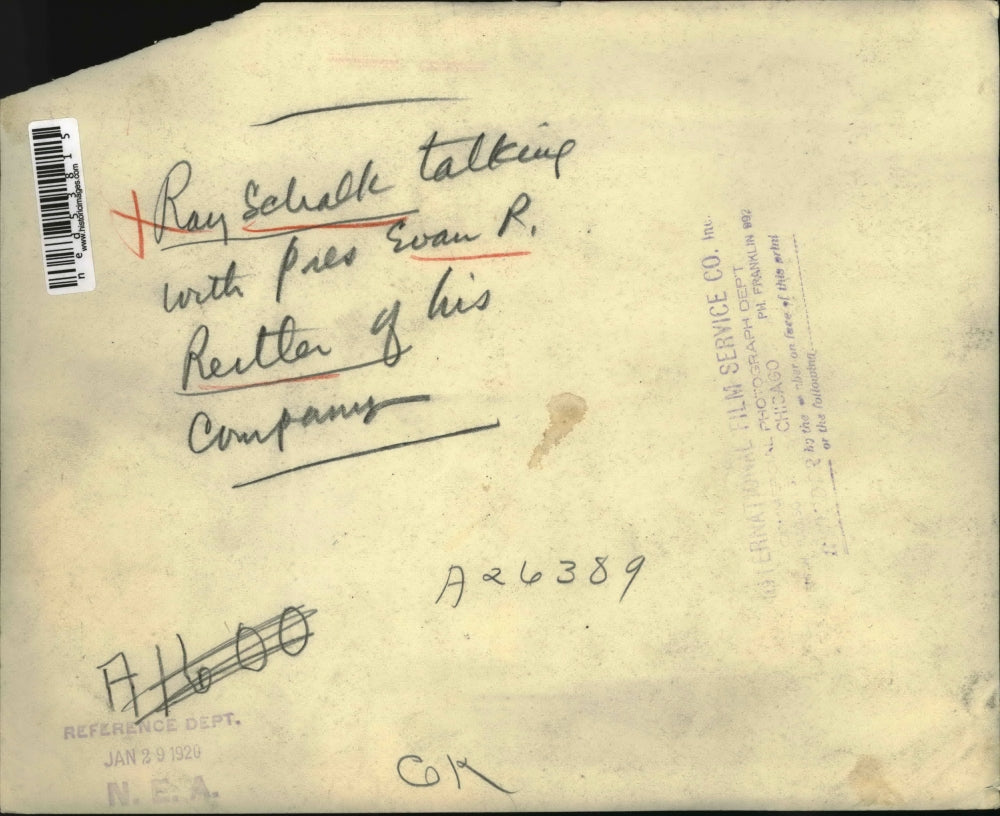 Ray Schalk talking
with Pres Evan R.
Reutler of his
Company
A26389
A1600
REFERENCE DEPT.
JAN 29 1920
N. E. A.
OK
INTERNATIONAL FILM SERVICE CO. Inc.
PHOTOGRAPH DEPT
CHICAGO PH. FRANKLIN 992
by the number on face of this print
or the following
www.historicimages.com